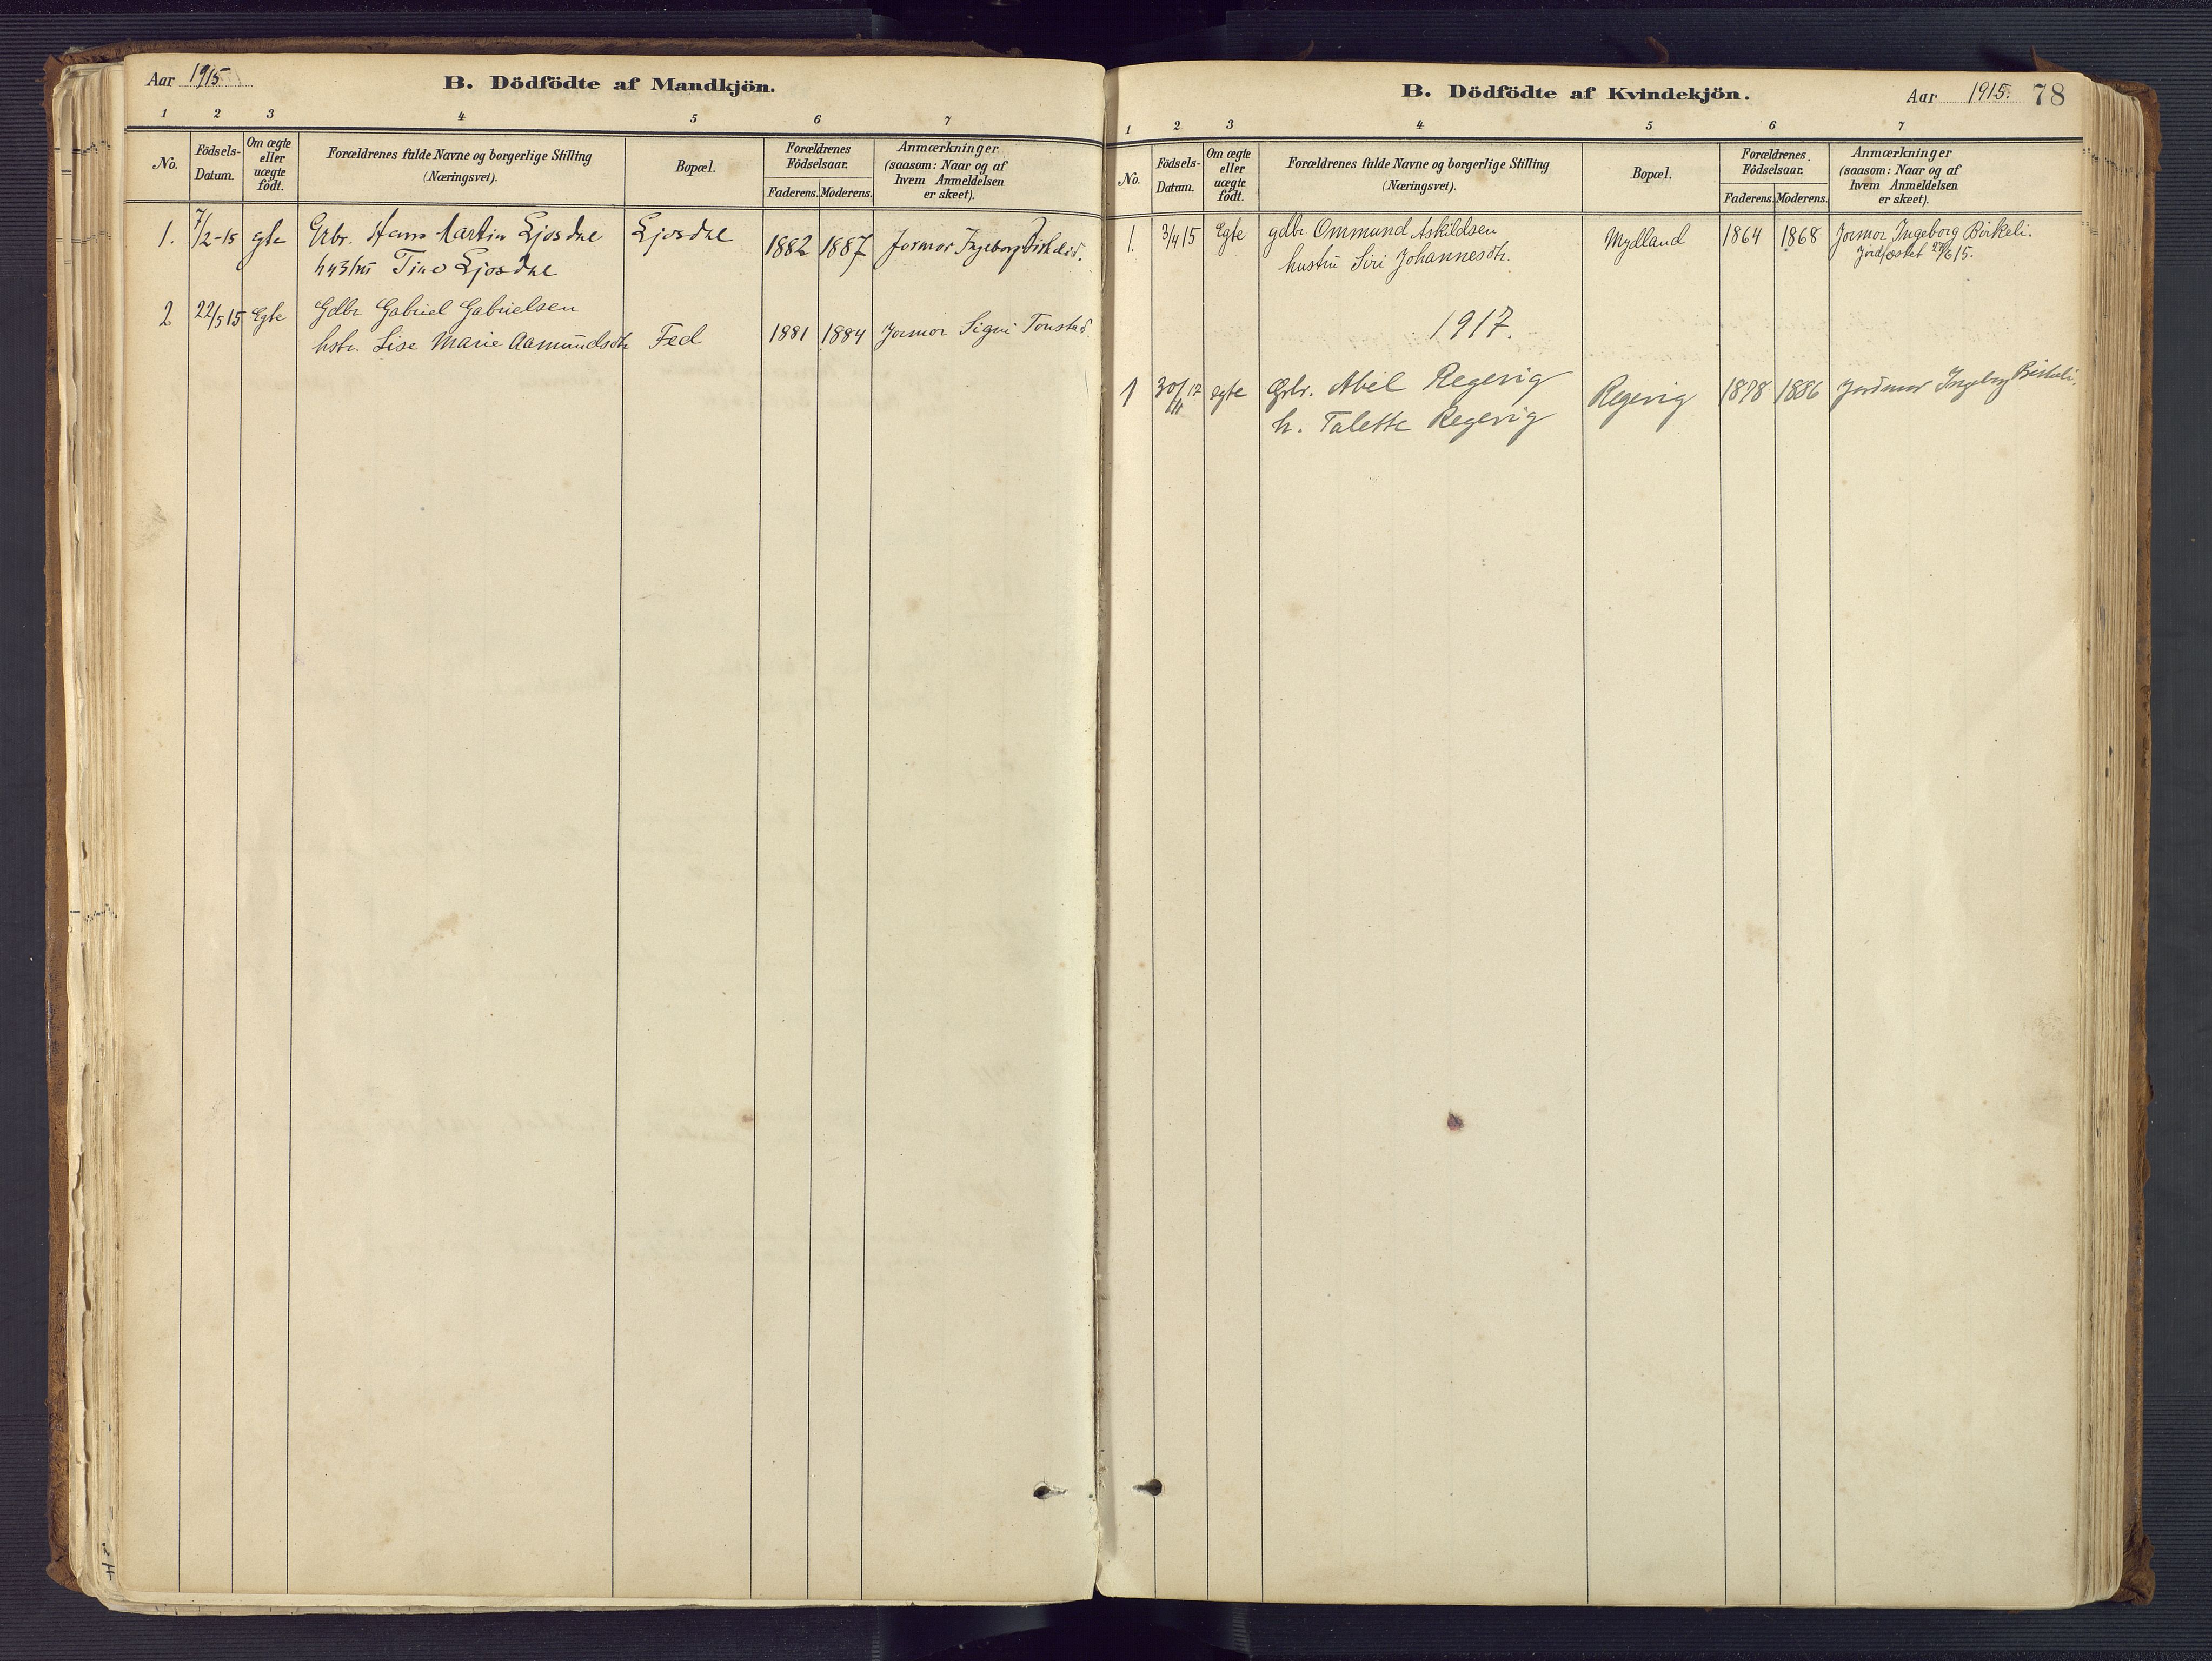 Aar 1915
B. Dödfödte af Mandkjön.
1 2 3 4 5 6 7
No.
Födsels-
Datum.
Om ægte
eller
uægte
födt.
Forældrenes fulde Navne og borgerlige Stilling
(Næringsvei).
Bopæl.
Forældrenes
Födselsaar.
Faderens. Moderens.
Anmærkninger
(saasom: Naar og af
hvem Anmeldelsen
er skeet).
1. 7/2-15 egte Grbr. Hans Martin Ljosdal Ljosdal 1882 1887 Jormor Ingeborg Birkeli.
hustru Ljosdal
2 22/5 15 Egte Gdbr Gabriel Gabrielsen
hstr. Lise Marie Aamundsdtr Fed 1881 1884 Jormor Signi Tonstad
B. Dödfödte af Kvindekjön.
Aar 1915. 78
1 2 3 4 5 6 7
No.
Födsels-
Datum.
Om ægte
eller
uægte
födt.
Forældrenes fulde Navne og borgerlige Stilling
(Næringsvei).
Bopæl.
Forældrenes.
Födselsaar.
Faderens. Moderens.
Anmærkninger
(saasom: Naar og af
hvem Anmeldelsen
er skeet).
1. 3/4 15 Egte gdbr Ommund Askildsen Mydland 1864 1868 Jormor Ingeborg Birkeli.
hustru Siri Johannesdtr. Jordfæstet 27/6 15.
1917.
1 30/11 17 egte Grbr. Abil Regevig Regevig 1878 1886 Jordmor Ingeborg Birkeli.
h. Talette Regevig